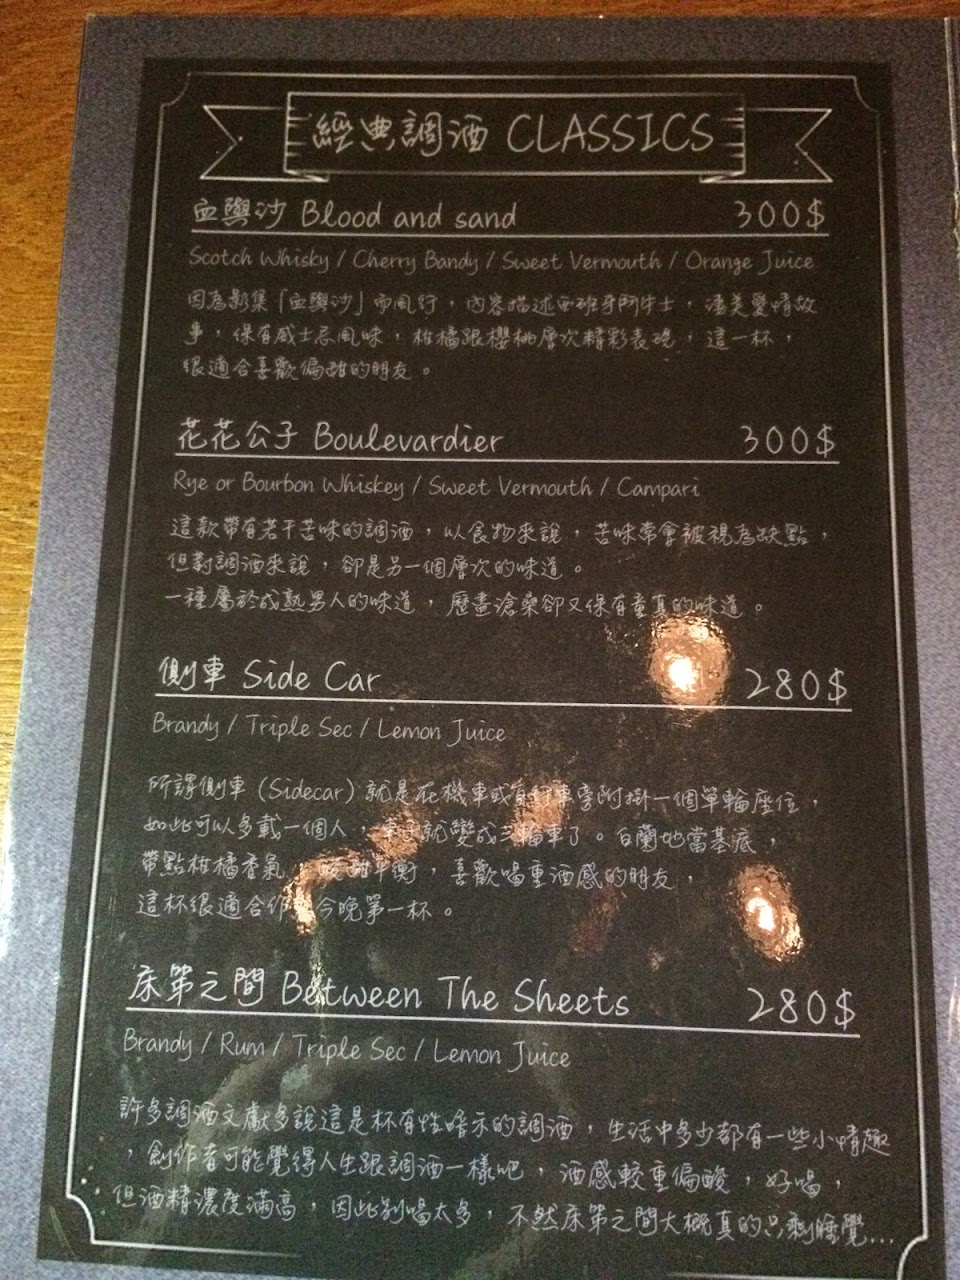 經典調酒 CLASSICS
血與沙 Blood and sand 300$
Scotch Whisky / Cherry Bandy / Sweet Vermouth / Orange Juice
因為影集「血與沙」而風行，內容描述西班牙鬥牛士，淒美愛情故
事，保有威士忌風味，柑橘跟櫻桃層次精彩表現，這一杯，
很適合喜歡偏甜的朋友。
花花公子 Boulevardier 300$
Rye or Bourbon Whiskey / Sweet Vermouth / Campari
這款帶有若干苦味的調酒，以食物來說，苦味常會被視為缺點，
但對調酒來說，卻是另一個層次的味道。
一種屬於成熟男人的味道，歷盡滄桑卻又保有童真的味道。
側車 Side Car 280$
Brandy / Triple Sec / Lemon Juice
所謂側車（Sidecar）就是在機車或自行車旁附掛一個單輪座位，
如此可以多載一個人，就變成三輪車了。白蘭地當基底，
帶點柑橘香氣，酸甜平衡，喜歡喝重酒感的朋友，
這杯很適合作今晚第一杯。
床第之間 Between The Sheets 280$
Brandy / Rum / Triple Sec / Lemon Juice
許多調酒文獻多說這是杯有性暗示的調酒，生活中多少都有一些小情趣
，創作者可能覺得人生跟調酒一樣吧，酒感較重偏酸，好喝，
但酒精濃度滿高，因此別喝太多，不然床第之間大概真的只剩睡覺...